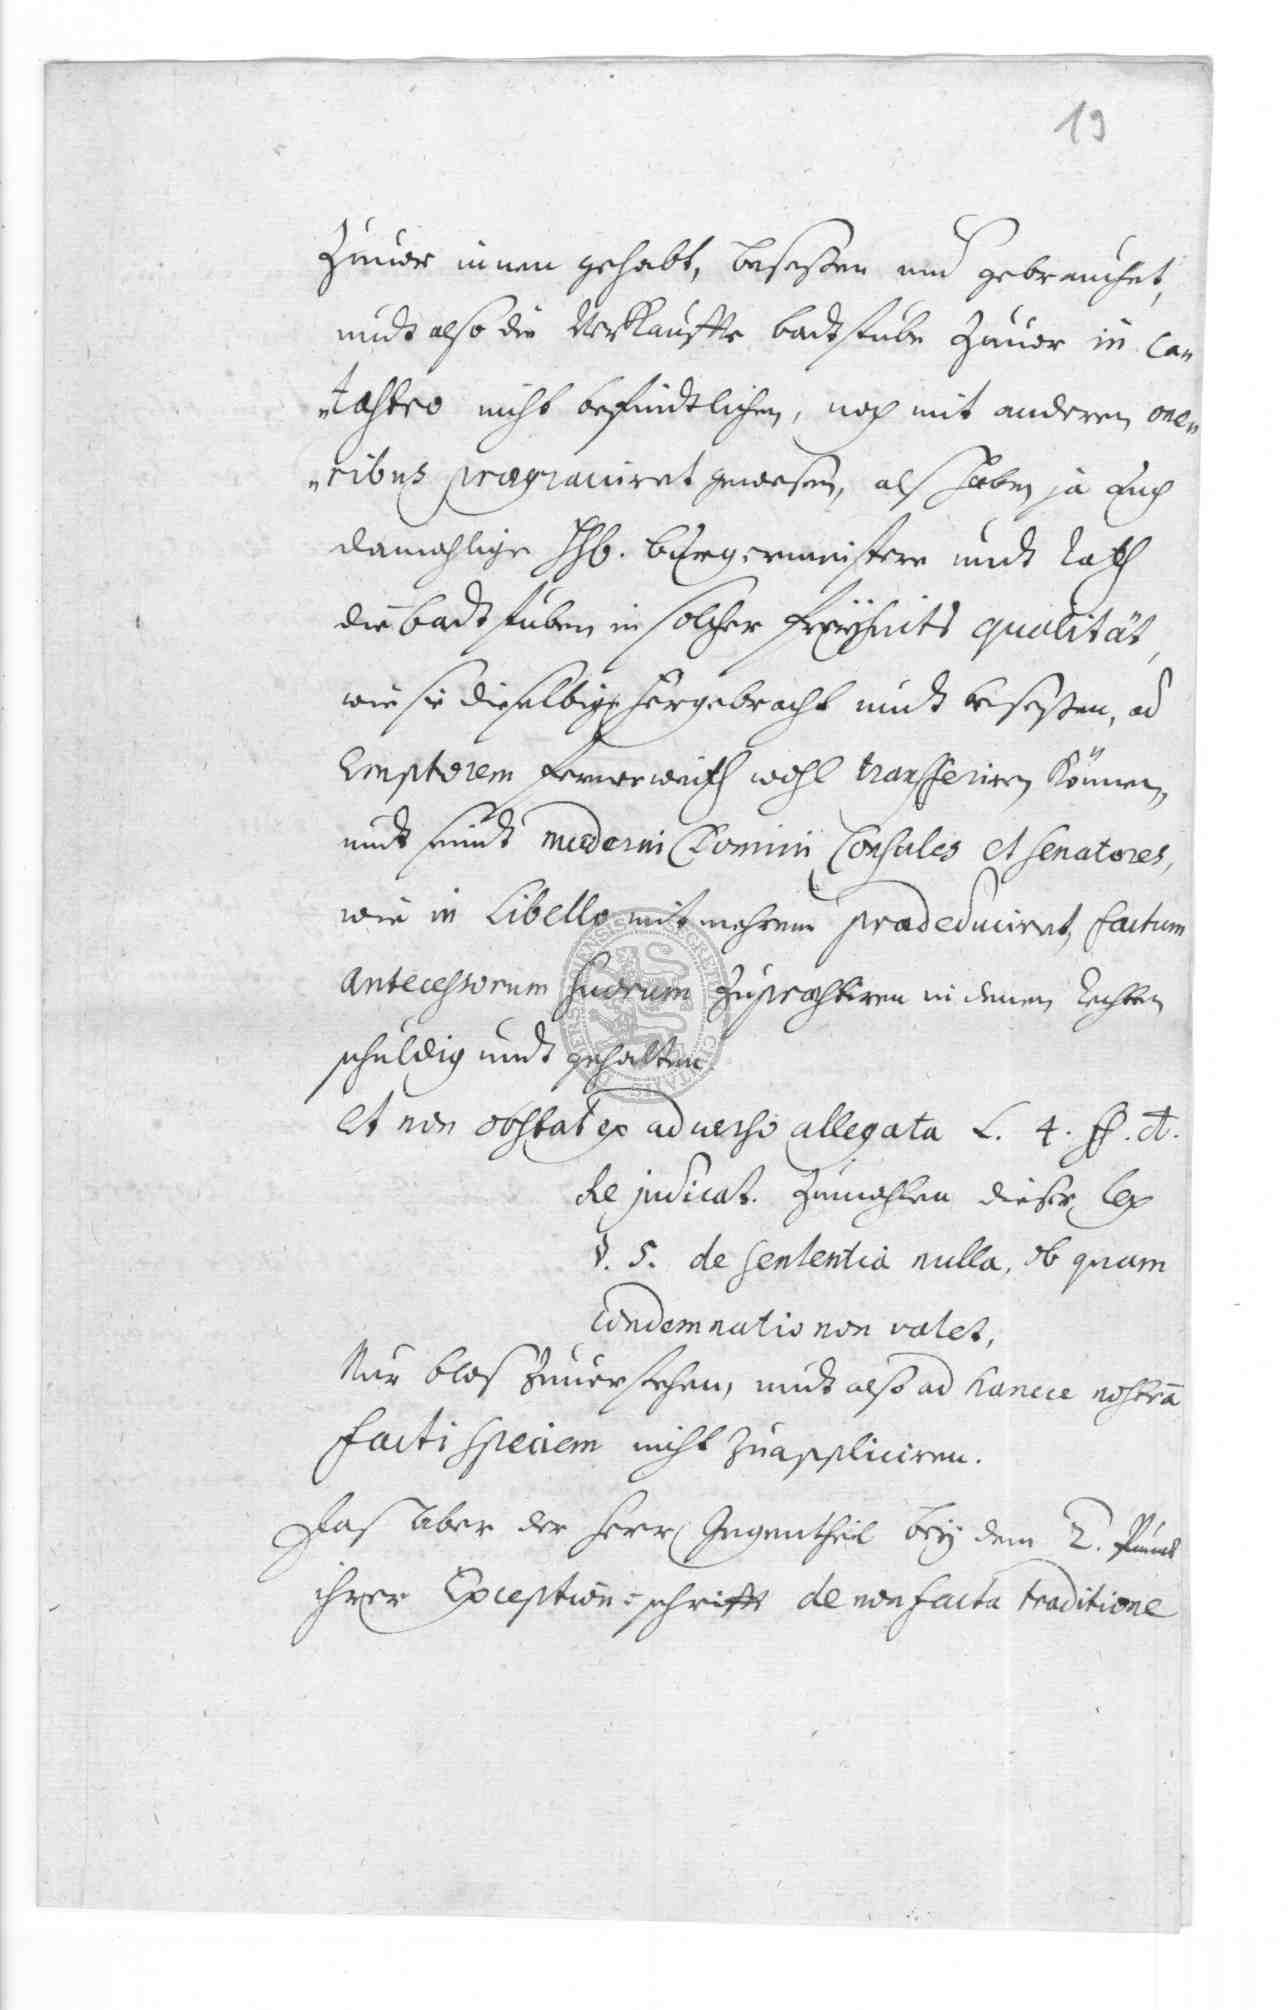 19
Zuuor innen gehabt, beseßen und gebrauchet,
undt also die Verkauffte badtstube Zuuor in Ca„
„tastro nicht befindtlichen, noch mit anderen one„
„ribus prægrauiret gewesen, alß haben ja auch
damahlige HhE. bürgermeistere undt Rath
die badtstuben in solcher freÿheits qualität,
wie sie dieselbige hergebracht undt beseßen, ad
Emptorem fernerweith wohl transferiren können,
undt seindt moderni Domini Consules et Senatores,
wie in Libello mit mehrem prædeduciret, factum
Antecessorum suorum Zupræstiren in denen Rechten
schuldig undt gehalten.
Et non obstat ex aduerso allegata L. 4. ff. A.
de judicat. Zumahlen dieser lex
§. 5. de sententia nulla, ob quam
condemnatio non valet,
Nur bloß Zuuerstehen, undt also ad hancce nostrā
facti speciem nicht Zuappliciren.
Das aber der Herr Gegentheil beÿ dem 2. Punct
ihrer Exceptions-schrifft de non facta traditione